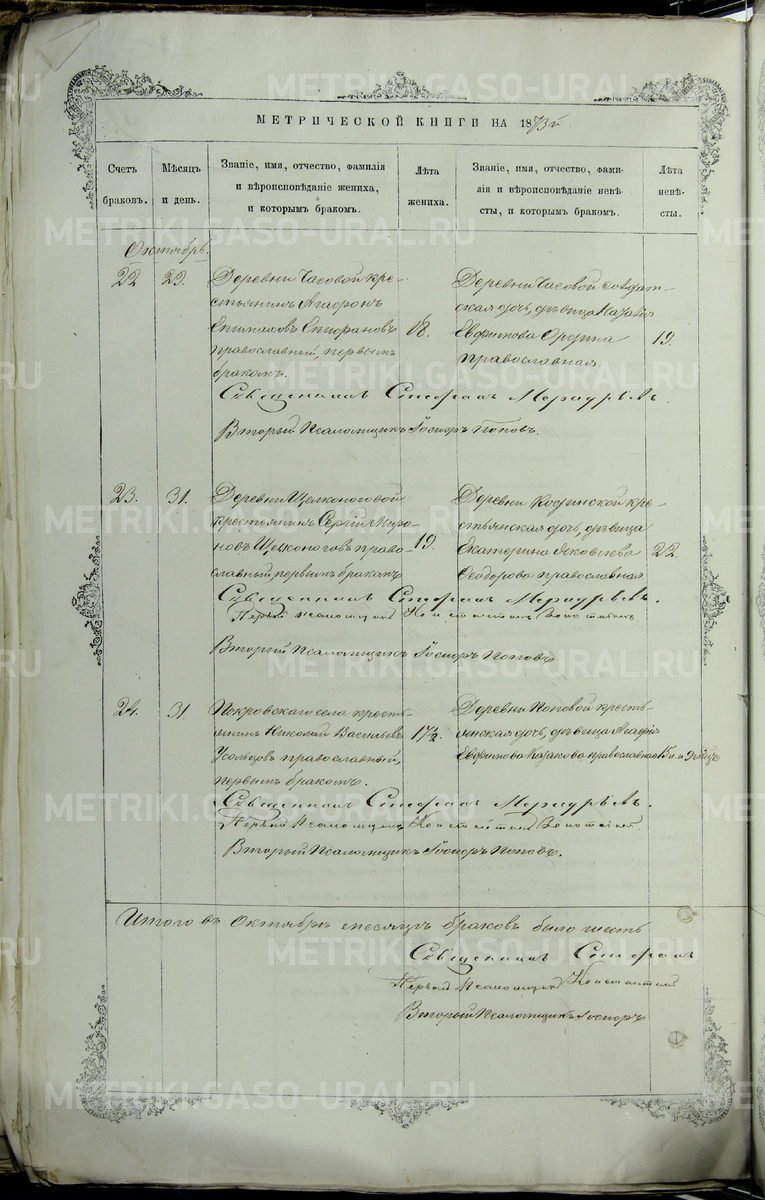 МЕТРИЧЕСКОЙ КНИГИ НА 1873й
Счетъ
браковъ.
Мѣсяцъ
и день.
Званіе, имя, отчество, фамилія
и вѣроисповѣданіе жениха,
и которымъ бракомъ.
Лѣта
жениха.
Званіе, имя, отчество, фами-
лія и вѣроисповѣданіе невѣ-
сты, и которымъ бракомъ.
Лѣта
невѣ-
сты.
Октябрь.
22
29.
Деревни Часовой кре-
стьянинъ Агафонъ
Епифановъ
православный, первымъ
бракомъ.
18.
Деревни Часовой солдат-
ская дочь, дѣвица
Евфимова
православная.
19.
Священникъ Стефанъ Меркурьевъ.
Вторый Псаломщикъ Іосифъ Поповъ.
23.
31.
Деревни Щелконоговой
крестьянинъ Сергій Миро-
новъ Щелконоговъ право-
славный, первымъ бракомъ
19.
Деревни Кодинской кре-
стьянская дочь, дѣвица
Екатерина Яковлева
Ѳеодорова православная
22.
Священникъ Стефанъ Меркурьевъ.
Первый псаломщикъ Константинъ
Вторый Псаломщикъ Іосифъ Поповъ
24.
31.
Покровскаго села кресть-
янинъ Николай Васильевъ
Усольцовъ православный,
первымъ бракомъ.
17½.
Деревни Поповой кресть-
янская дочь, дѣвица Агафія
Евфимова Казакова православная
15 л. и 9 мѣс
Священникъ Стефанъ Меркурьевъ.
Первый Псаломщикъ Константинъ
Вторый Псаломщикъ Іосифъ Поповъ.
Итого въ Октябрѣ месяцѣ браковъ было шесть
Священникъ Стефанъ
Первый Псаломщикъ Константинъ
Вторый Псаломщикъ Іосифъ
METRIKI.GASO-URAL.RU